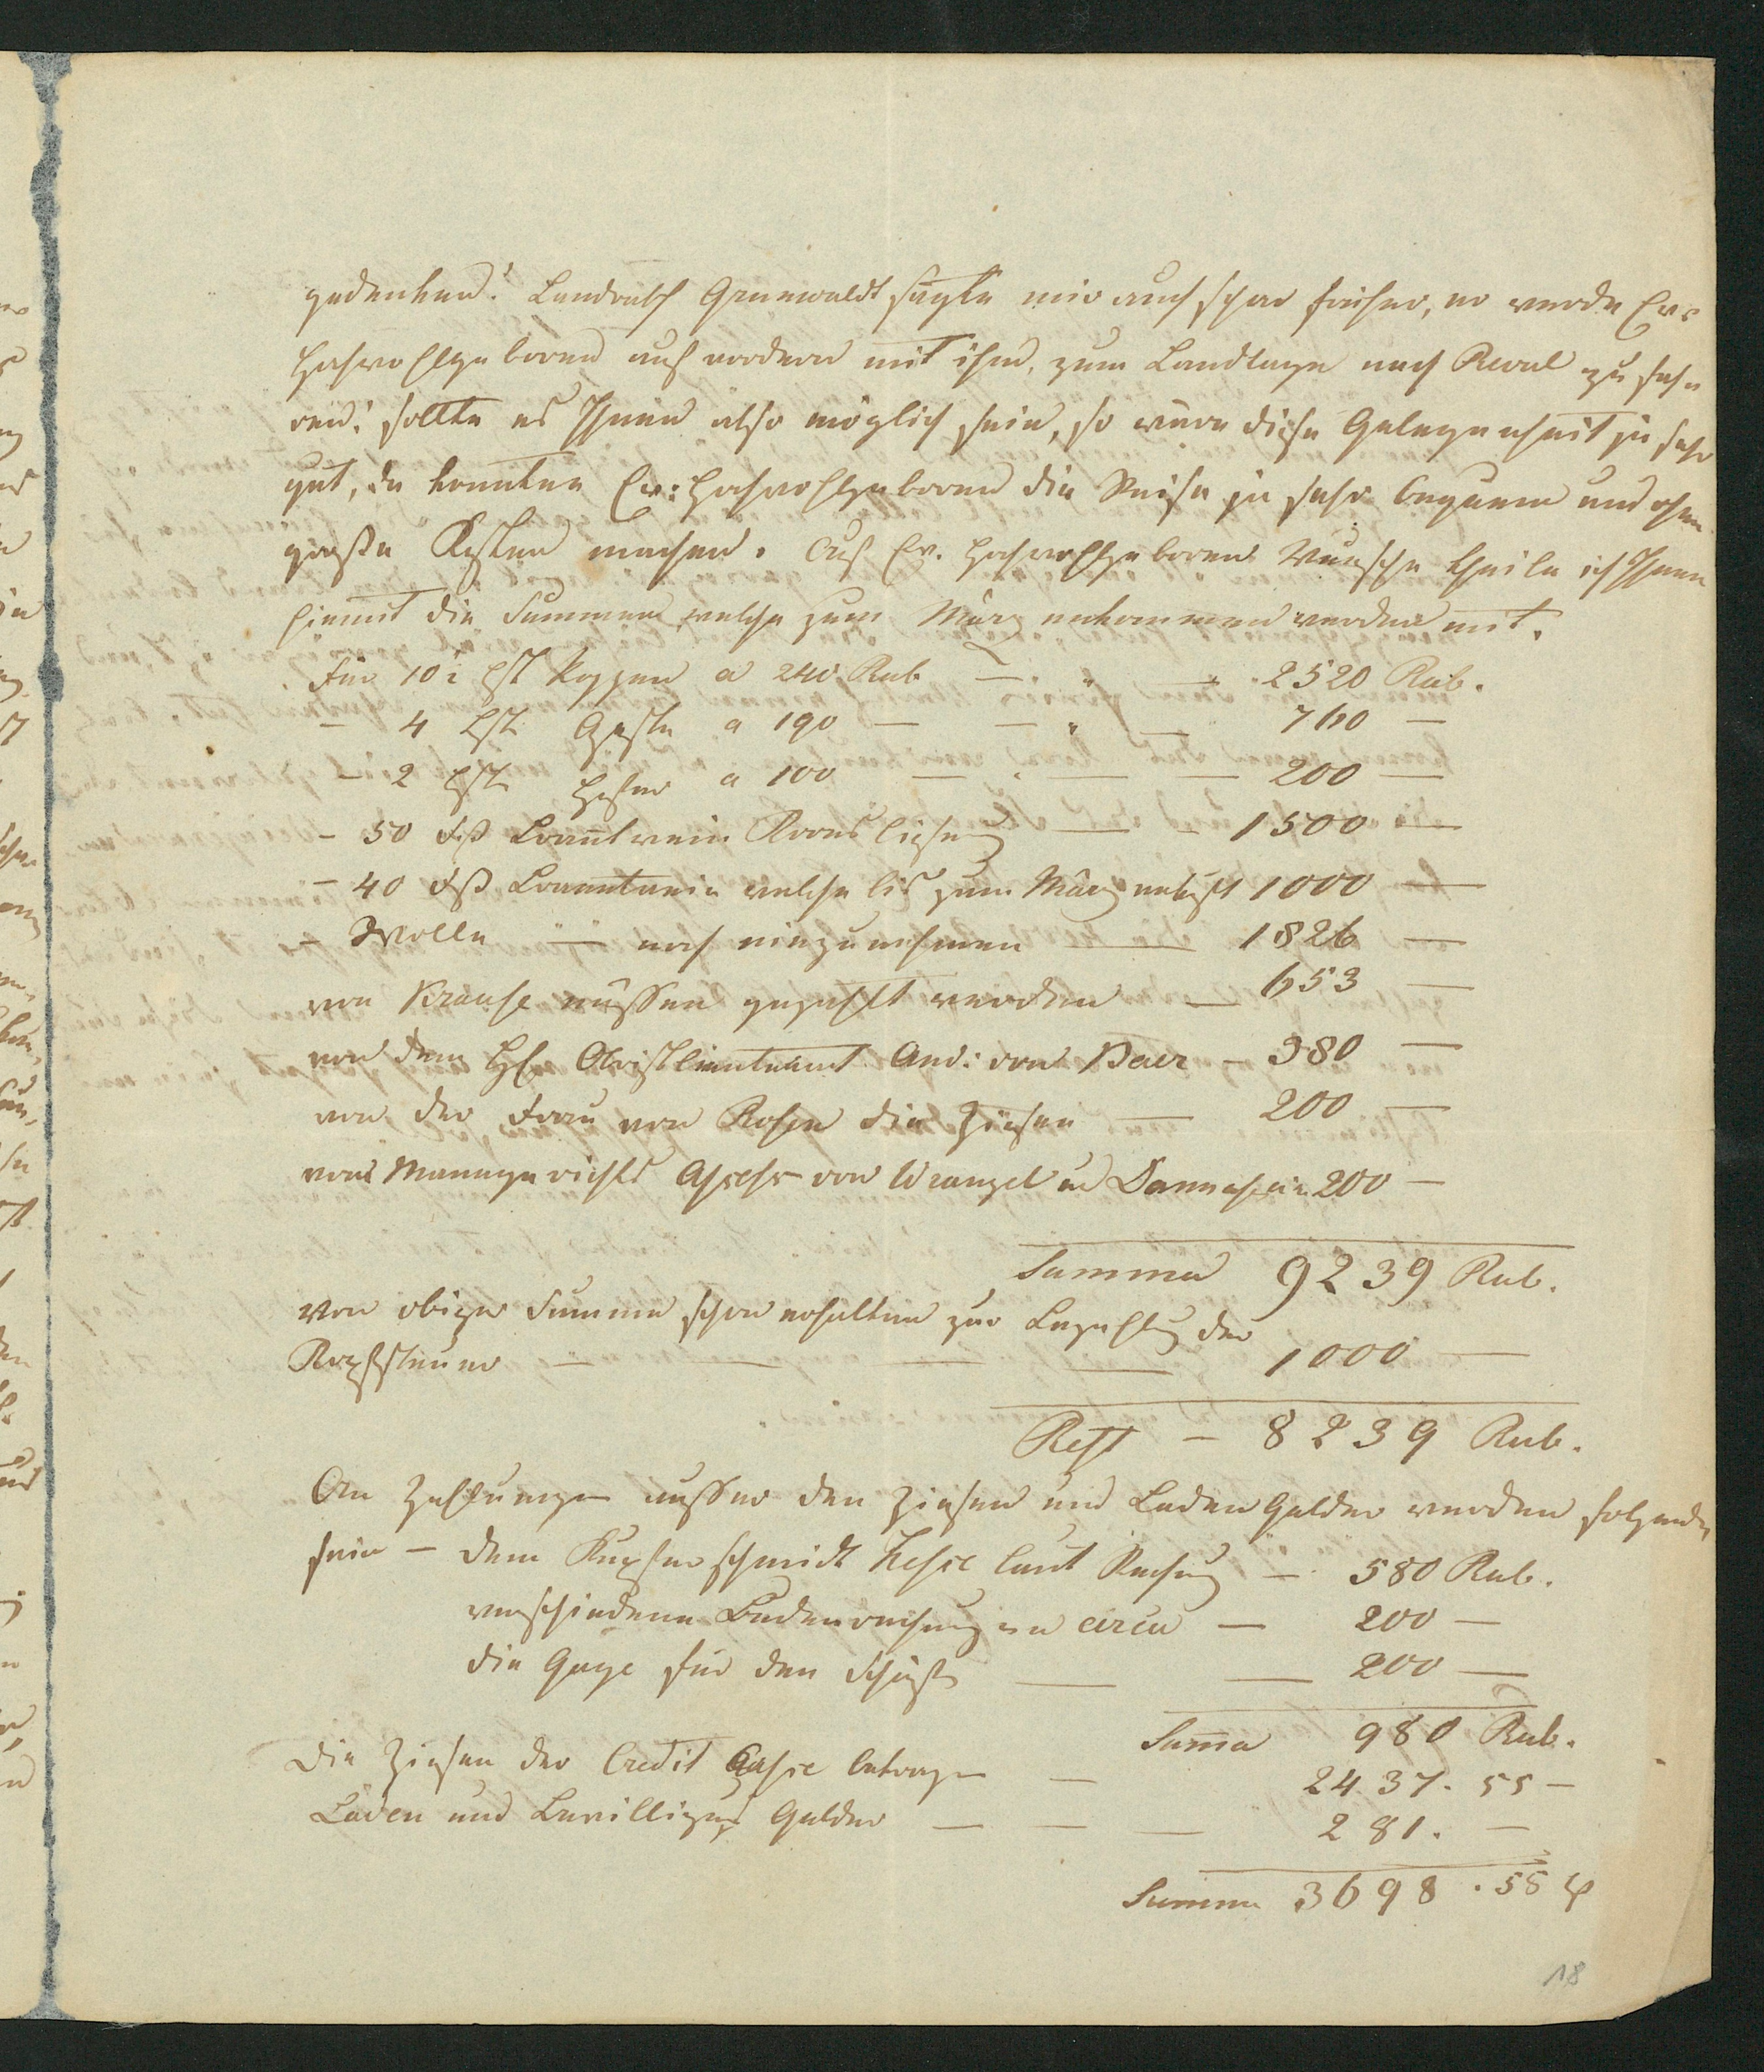 gedenken! Landrath Grünewaldt sagte mir auch schon früher, er werde Ew:
Hochwohlgeboren auffordern mit ihm, zum Landtage nach Reval zu fah
ren! sollte es Ihnen also möglich sein, so wäre diese Gelegenheit ja sehr
gut, da konnten Ew: Hochwohlgeboren die Reise ja sehr bequem und ohne
große Kosten machen. Auf Ew. Hochwohlgeboren Wunsche theile ich Ihnen
hiemit die Summen welche zum März einkommen werden mit.
Für 10½ Lst Roggen a 240 Rub — " — 2520 Rub.
— 4 Lst Gerste a 190 — — " — 760 —
— 2 Lst Hafer a 100 — — — 200 —
— 50 Fß Brantwein Krons — — 1500 —
— 40 Fß Branntwein welche bis zum März 1000 —
— Wolle — noch einzunehmen — 1826 —
von Krause müssen gezahlt werden — 653 —
von dem H. Obristlieutenant And: von Baer — 380 —
von der Frau von Rosen die Zinsen — 200 —
vom Manngerichts Assessor von Wrangel 200 —
Summa 9239 Rub.
Von obiger Summe schon erhalten zur Bezahlung der
Kopfsteuer — — — — 1000 —
Rest — 8239 Rub.
An Zahlungen ausser den Zinsen und Laden Gelder werden folgende
sein — dem Kupferschmidt Hesse laut Rechnung — 580 Rub.
verschiedene Budenrechnungen circa — 200 —
die Gage für den — — 200 —
Suma 980 Rub.
Die Zinsen der Credit Casse betragen — 2437. 55 —
Laden und Bewilligungs Gelder — — — 281. —
Summa 3698 . 55
18